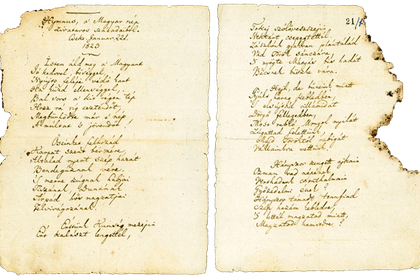 Hymnus, a' Magyar nép
zivataros századaiból.
Cseke, Január. 22d.
1823
Isten áldd meg a' Magyart
Jó kedvvel, bőséggel,
Nyújts feléje védő kart,
Ha küzd ellenséggel;
Bal sors a' kit régen tép,
Hozz rá víg esztendőt,
Megbűnhődte már e' nép
A' multat 's jövendőt!
Őseinket felhozád
Kárpát szent bérczére,
Általad nyert szép hazát
Bendegúznak vére.
'S merre zúgnak habjai
Tiszának, Dunának,
Árpád hős magzatjai
Felvirágozának.
Értünk Kunság mezein
Ért kalászt lengettél,
21/
Tokaj szőlővesszein
Nektárt csepegtettél.
Zászlónk gyakran plántálád
Vad Török sánczára,
'S nyögte Mátyás bús hadát
Bécsnek büszke vára.
Hajh, de bűneink miatt
Gyúlt harag kebledben,
'S elsújtád villámidat
Dörgő fellegedben,
Most rabló Mongol nyilát
Zúgattad felettünk,
Majd Töröktől rabigát
Vállainkra vettünk.
Hányszor zengett ajkain
Ozman vad népének
Vert hadunk csonthalmain
Győzedelmi ének!
Hányszor támadt tenfiad
Szép hazám kebledre,
'S lettél magzatod miatt,
Magzatod hamvedre?